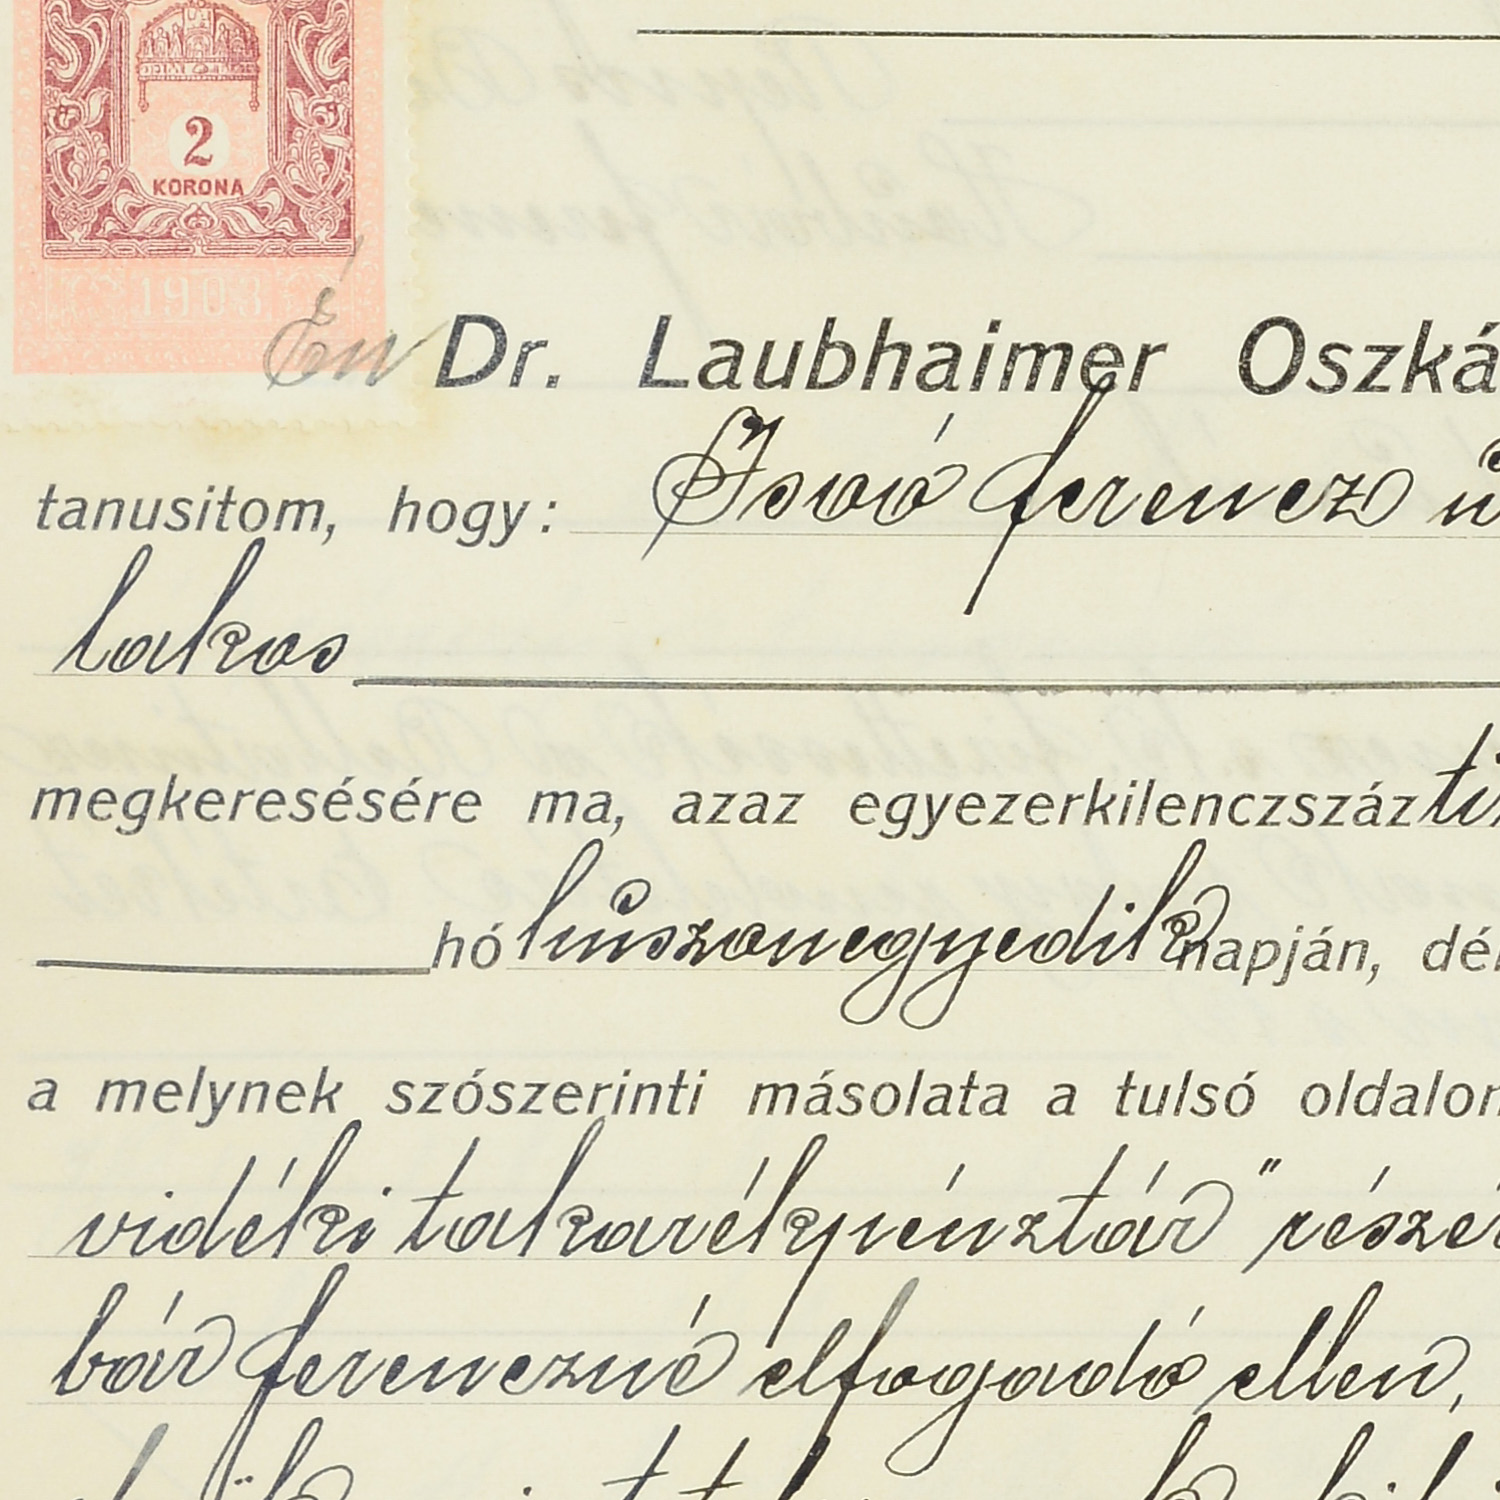 2
KORONA
1903
Én Dr. Laubhaimer Oszká
tanusitom, hogy: Isoó ferencz
lakos
megkeresésére ma, azaz egyezerkilenczszáz
hó huszonegyedik napján, dél
a melynek szószerinti másolata a tulsó oldalon
vidéki takarékpénztár" részér
bár ferenczné elfogadó ellen,